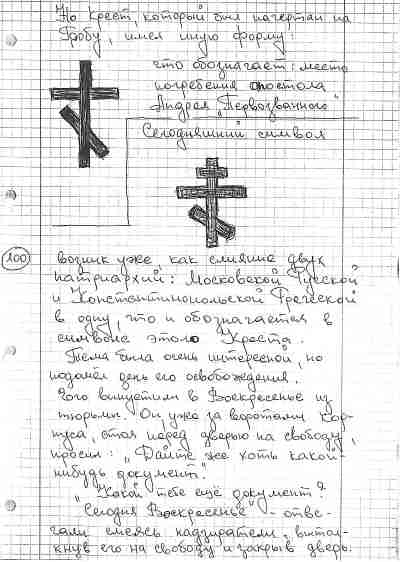 Но Крест, который был начертан на
Гробу, имел иную форму:
что обозначает: место
погребения Апостола
Андрея "Первозванного"
Сегодняшний символ
100
возник уже, как слияние двух
патриархий: Московской Русской
и Константинопольской Греческой
в одну, что и обозначается в
символе этого Креста.
Тема была очень интересной, но
подошёл день его освобождения.
Его выпустили в Воскресенье из
тюрьмы. Он, уже за воротами кор-
пуса, стоя перед дверью на свободу,
просил: „Дайте же хоть какой-
нибудь документ".
„Какой тебе ещё документ?
Сегодня Воскресенье" - отве-
чали смеясь надзиратели, вытол-
кнув его на свободу и закрыв дверь.